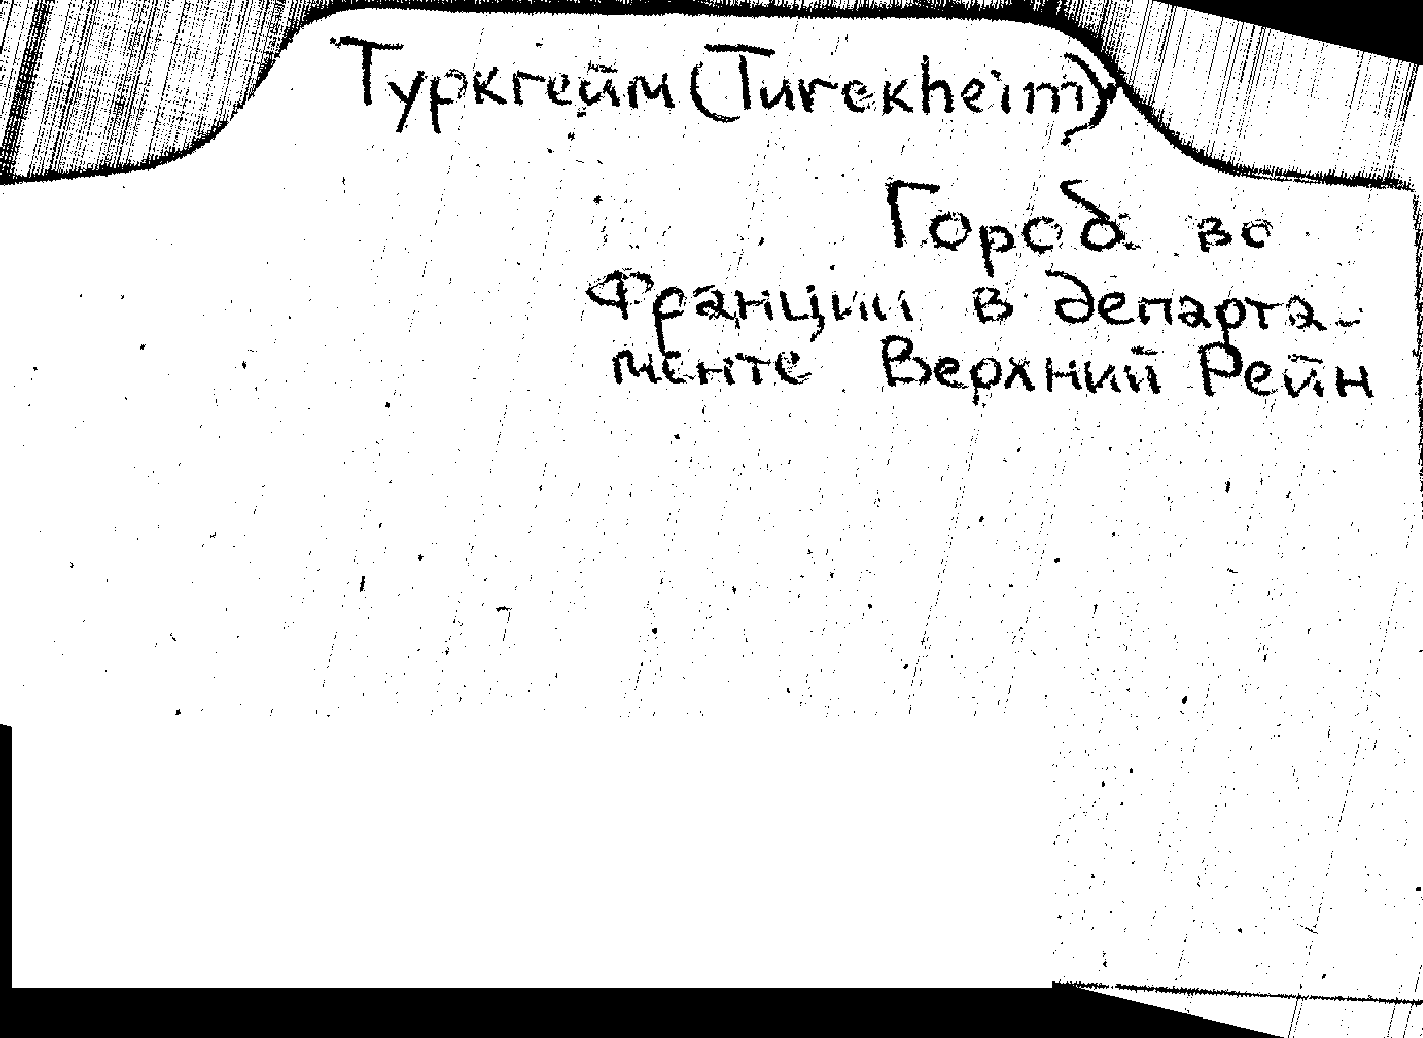 Туркгейм (Turekheim)
Город во
Франции в департа-
менте Верхний Рейн